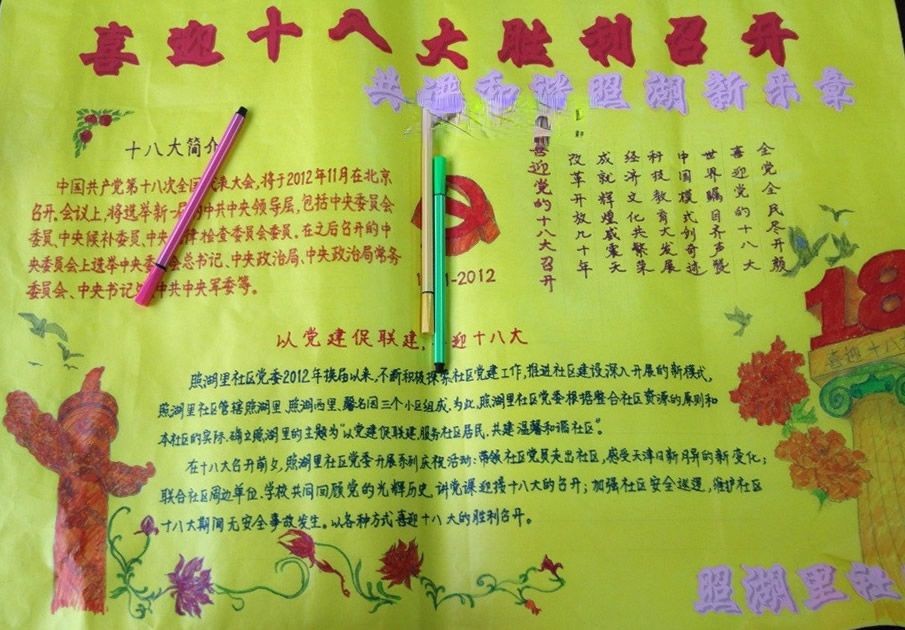 喜迎十八大胜利召开
共谱和谐照湖新乐章
十八大简介
中国共产党第十八次全国代表大会,将于2012年11月在北京
召开,会议上,将选举新一届的中共中央领导层,包括中央委员会
委员、中央候补委员、中央纪律检查委员会委员、在之后召开的中
央委员会上选举中央委员会总书记、中央政治局、中央政治局常务
委员会、中央书记处、中共中央军委等。
-2012
喜迎党的十八大召开
全党全民尽开颜
喜迎党的十八大
世界瞩目齐声赞
中国模式创奇迹
科技教育大发展
经济文化共繁荣
成就辉煌威震天
改革开放几十年
以党建促联建,喜迎十八大
照湖里社区党委2012年换届以来,不断积极探索社区党建工作,推进社区建设深入开展的新模式,
照湖里社区管辖照湖里、照湖西里、馨名园三个小区组成,为此,照湖里社区党委根据整合社区资源的原则和
本社区的实际,确立照湖里的主题为“以党建促联建,服务社区居民,共建温馨和谐社区”。
在十八大召开前夕,照湖里社区党委开展系列庆祝活动:带领社区党员走出社区,感受天津日新月异的新变化;
联合社区周边单位、学校共同回顾党的光辉历史,讲党课迎接十八大的召开;加强社区安全巡逻,维护社区
十八大期间无安全事故发生。以各种方式喜迎十八大的胜利召开。
18
喜迎十八
照湖里社